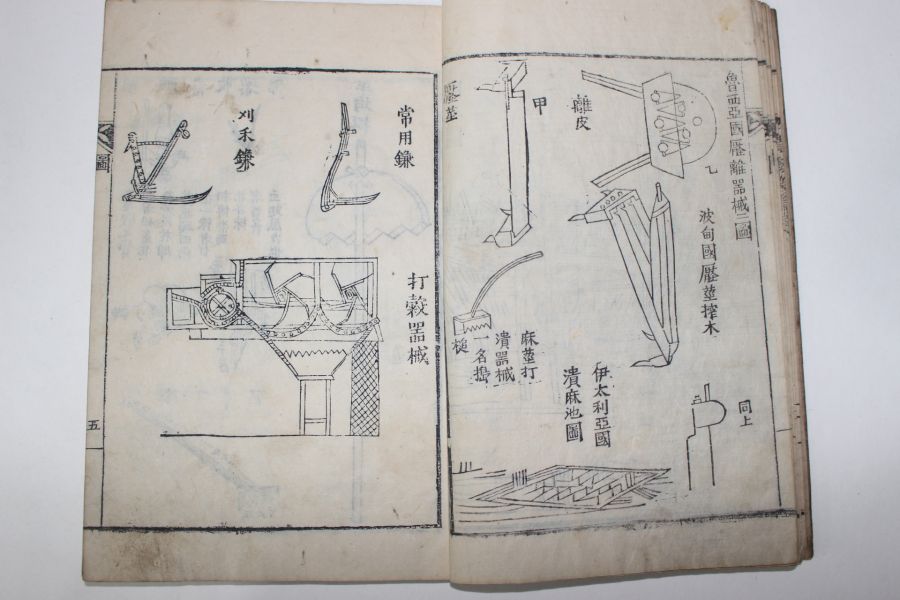 魯西亞國壓離器械三圖
乙
離皮
甲
壓莖
波甸國壓莖搾木
同上
伊太利亞國
潰麻池圖
麻莖打
潰器械
一名搗
槌
常用鎌
刈禾鎌
打穀器械
圖
五